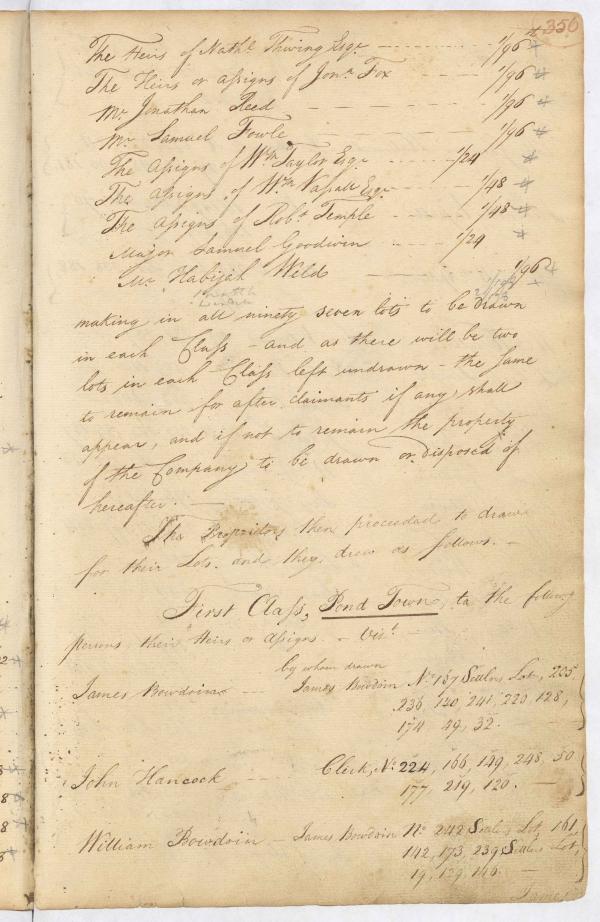 356
The Heirs of Nathl. Thwing Esqr. 1/96
The Heirs or assigns of Jonn. Fox 1/96
Mr. Jonathan Reed 1/96
Mr. Samuel Fowle 1/96
The assigns of Wm. Taylor Esqr. 1/24
The assigns of Wm. Vassall Esqr. 1/48
The assigns of Robt. Temple 1/48
Major Samuel Goodwin 1/24
Mr. Habijah Weld 1/96
making in all ninety seven lots to be drawn
in each Class - and as there will be two
lots in each Class left undrawn - the same
to remain for after claimants if any shall
appear, and if not to remain the property
of the Company to be drawn or disposed of
hereafter. -
The Proprietors then proceeded to draw
for their Lots, and they drew as follows. -
First Class, Pond Town, to the following
persons their Heirs or assigns - Vizt. -
by whom drawn
James Bowdoin - James Bowdoin No. 157 Settlers Lot, 205.
236, 120, 241, 220, 128,
174 49, 32. -
John Hancock - Clerk, No. 224, 166, 149, 248, 50
177, 219, 120. -
William Bowdoin - James Bowdoin No. 242 Settlers Lot, 161,
142, 173, 239 Settlers Lot,
19, 129, 146. -
James